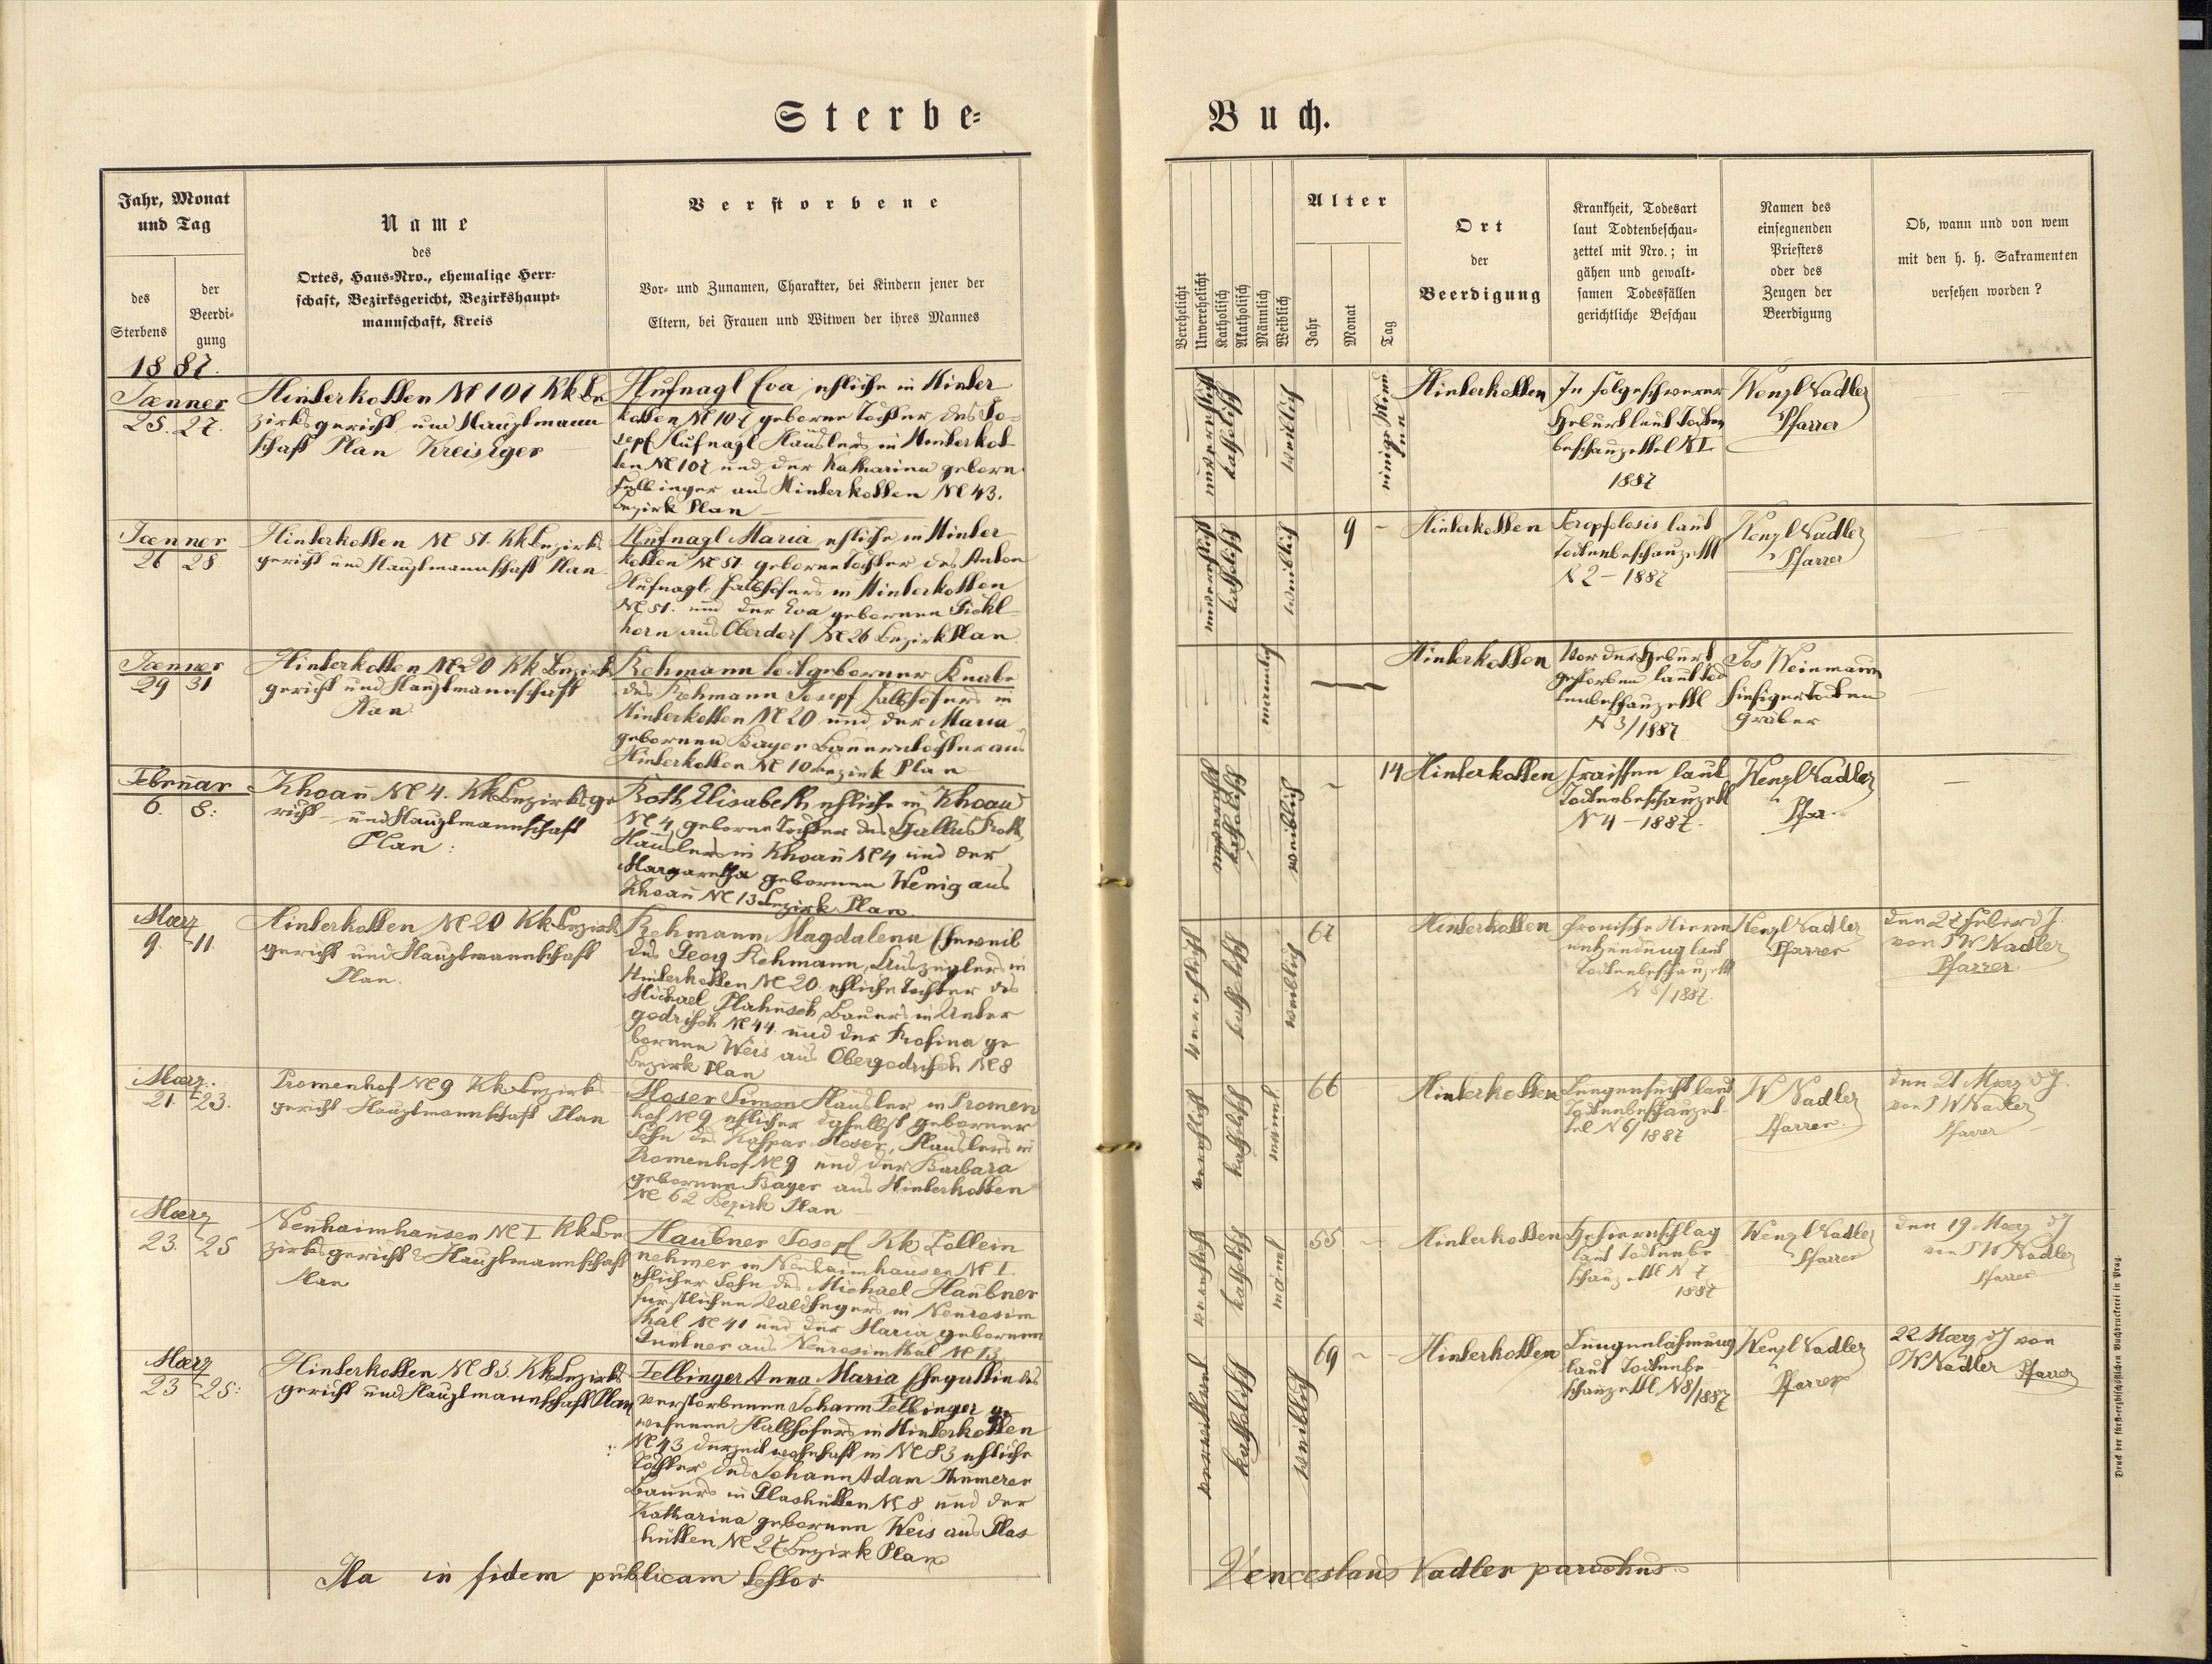 Sterbe-
Buch.
Jahr, Monat
und Tag
des
Sterbens
der
Beerdi-
gung
Name
des
Ortes, Haus-Nro., ehemalige Herr-
schaft, Bezirksgericht, Bezirkshaupt-
mannschaft, Kreis
Verstorbene
Vor- und Zunamen, Charakter, bei Kindern jener der
Eltern, bei Frauen und Witwen der ihres Mannes
Verehelicht
Unverehelicht
Katholisch
Akatholisch
Männlich
Weiblich
Alter
Jahr
Monat
Tag
Ort
der
Beerdigung
Krankheit, Todesart
laut Todtenbeschau-
zettel mit Nro.; in
gähen und gewalt-
samen Todesfällen
gerichtliche Beschau
Namen des
einsegnenden
Priesters
oder des
Zeugen der
Beerdigung
Ob, wann und von wem
mit den h. h. Sakramenten
versehen worden?
1887.
Jænner
25. 27.
Hinterkotten N 107 KkBe
zirksgericht und Hauptmann
schaft Plan
Hufnagl Eva eheliche in Hinter
kotten N 107 geborne Tochter des Jo-
sepf Hufnagl Häuslers in Hinterkot
ten N 107 und der Katharina geborn
Felbinger aus Hinterkotten N 43.
Bezirk Plan
unverehelicht
katholisch
weiblich
einige Minu
ten
Hinterkotten
In folge schwerer
Geburt laut Todten
beschauzettel N I
1887
Wenzl Nadler
Pfarrer
Jænner
26 28
Hinterkotten N 51. KkBezirks
gericht und Hauptmannschaft Plan
Hufnagl Maria eheliche in Hinter
kotten N 51. geborne Tochter des Anton
Hufnagl, Halbhofers in Hinterkotten
N 51. und der Eva gebornen Böhl
horn aus Oberdorf N 26 Bezirk Plan
unverehelicht
katholisch
weiblich
9 -
Hinterkotten
Scropfolosis laut
Todtenbeschauzettl
N 2 - 1887
Wenzl Nadler
Pfarrer
Jænner
29 31
Hinterkotten N 20 Kk Bezirks
gericht und Hauptmannschaft
Plan
Rehmann todtgeborner Knabe
des Rehmann Josepf Halbhofers in
Hinterkotten N 20 und der Maria
gebornen Bayer Bauerntochter aus
Hinterkotten N 10 Bezirk Plan
maennlich
Hinterkotten
Vor der Geburt
gestorben laut Tod
tenbeschauzettl
N 3/1887
Jos Weinmann
hiesiger Todten
gräber
Februar
6. 8:
Khoau N 4. KkBezirksge
richt - und Hauptmannschaft
Plan:
Roth Elisabeth eheliche in Khoau
N 4 geborne Tochter des Gallus Roth
Häuslers in Khoau N 4 und der
Margaretha gebornen Wenig aus
Khoau N 13 Bezirk Plan
unverehelicht
katholisch
weiblich
14
Hinterkotten
Fraissen laut
Todtenbeschauzettl
N 4 - 1887.
Wenzl Nadler
Pfar.
Maerz
9. 11.
Hinterkotten N 20 KkBezirks
gericht und Hauptmannschaft
Plan.
Rehmann Magdalena Eheweib
des Georg Rehmann, Auszüglers in
Hinterkotten N 20. eheliche Tochter des
Michael Bauers in Unter
godrisch N 44. und der Rosina ge
bornen Weis aus Obergodrisch N 8
Bezirk Plan
verehelicht
katholisch
weiblich
67
Hinterkotten
Cronische Nieren
entzündung laut
Todtenbeschauzettl
N 5/1887.
Wenzl Nadler
Pfarrer
den 27 Feber d J.
von P W Nadler
Pfarrer.
Maerz.
21. 23.
Promenhof N 9 KkBezirks
gericht Hauptmannschaft Plan
Moser Simon Häusler in Promen
hof N 9 ehelicher daselbst geborner
Sohn des Kaspar Moser, Häuslers in
Promenhof N 9 und der Barbara
gebornen Bayer aus Hinterkotten
N 62 Bezirk Plan
verehelicht
katholisch
männl
66
Hinterkotten
Lungensucht laut
Todtenbeschauzet-
tel N 6/1887
W Nadler
Pfarrer.
den 21 Maerz d J.
von P W Nadler
Pfarrer
Maerz
23. 25
Neuhaimhausen N I KkBe
zirksgericht & Hauptmannschaft
Plan
Haubner Josepf Kk Zollein
nehmer in Neuhaimhausen N I.
ehelicher Sohn des Michael Haubner
fürstlichen Waldhegers in Neulosim
thal N 41 und der Maria gebornen
aus Neulosimthal N 13
verehelicht
katholisch
männl
55
Hinterkotten
Gehirnschlag
laut Todtenbe
schauzettl N 7
1887
Wenzl Nadler
Pfarrer
den 19 Maerz d J
von P W Nadler
Pfarrer
Maerz
23 25:
Hinterkotten N 83. KkBezirks
gericht und Hauptmannschaft Plan
Felbinger Anna Maria Ehegattin des
verstorbenen Johann Felbinger ge
wesenen Halbhofers in Hinterkotten
N 43 derzeit wohnhaft in N 83 eheliche
Tochter des Johann Adam Thumerer
Bauers in Plashütten N 8 und der
Katharina gebornen Weis aus Plas
hütten N 27 Bezirk Plan
verwittwet
katholisch
weiblich
69
Hinterkotten
Lungenlähmung
laut Todtenbe
schauzettl N 8/1887
Wenzl Nadler
Pfarrer
22. Maerz d J von
P W Nadler Pfarrer
Ita in fidem publicam testor
Venceslaus Nadler parochus.
Druck der fürst-erzbischöflichen Buchdruckerei in Prag.